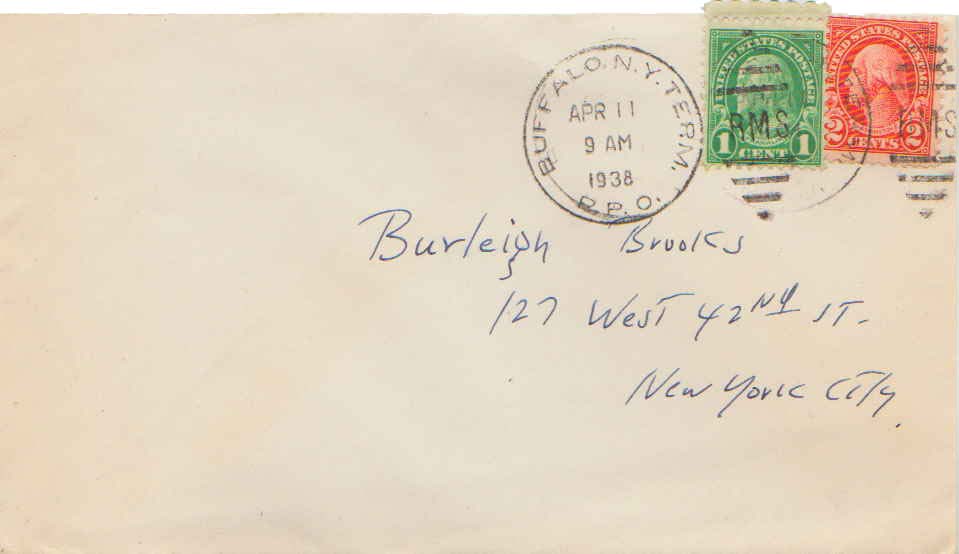 BUFFALO, N.Y. TERM.
APR 11
9 AM
1938
R.P.O.
UNITED STATES POSTAGE
1 CENT 1
RMS
UNITED STATES POSTAGE
2 CENTS 2
RMS
Burleigh Brooks
127 West 42ND ST.
New York City.